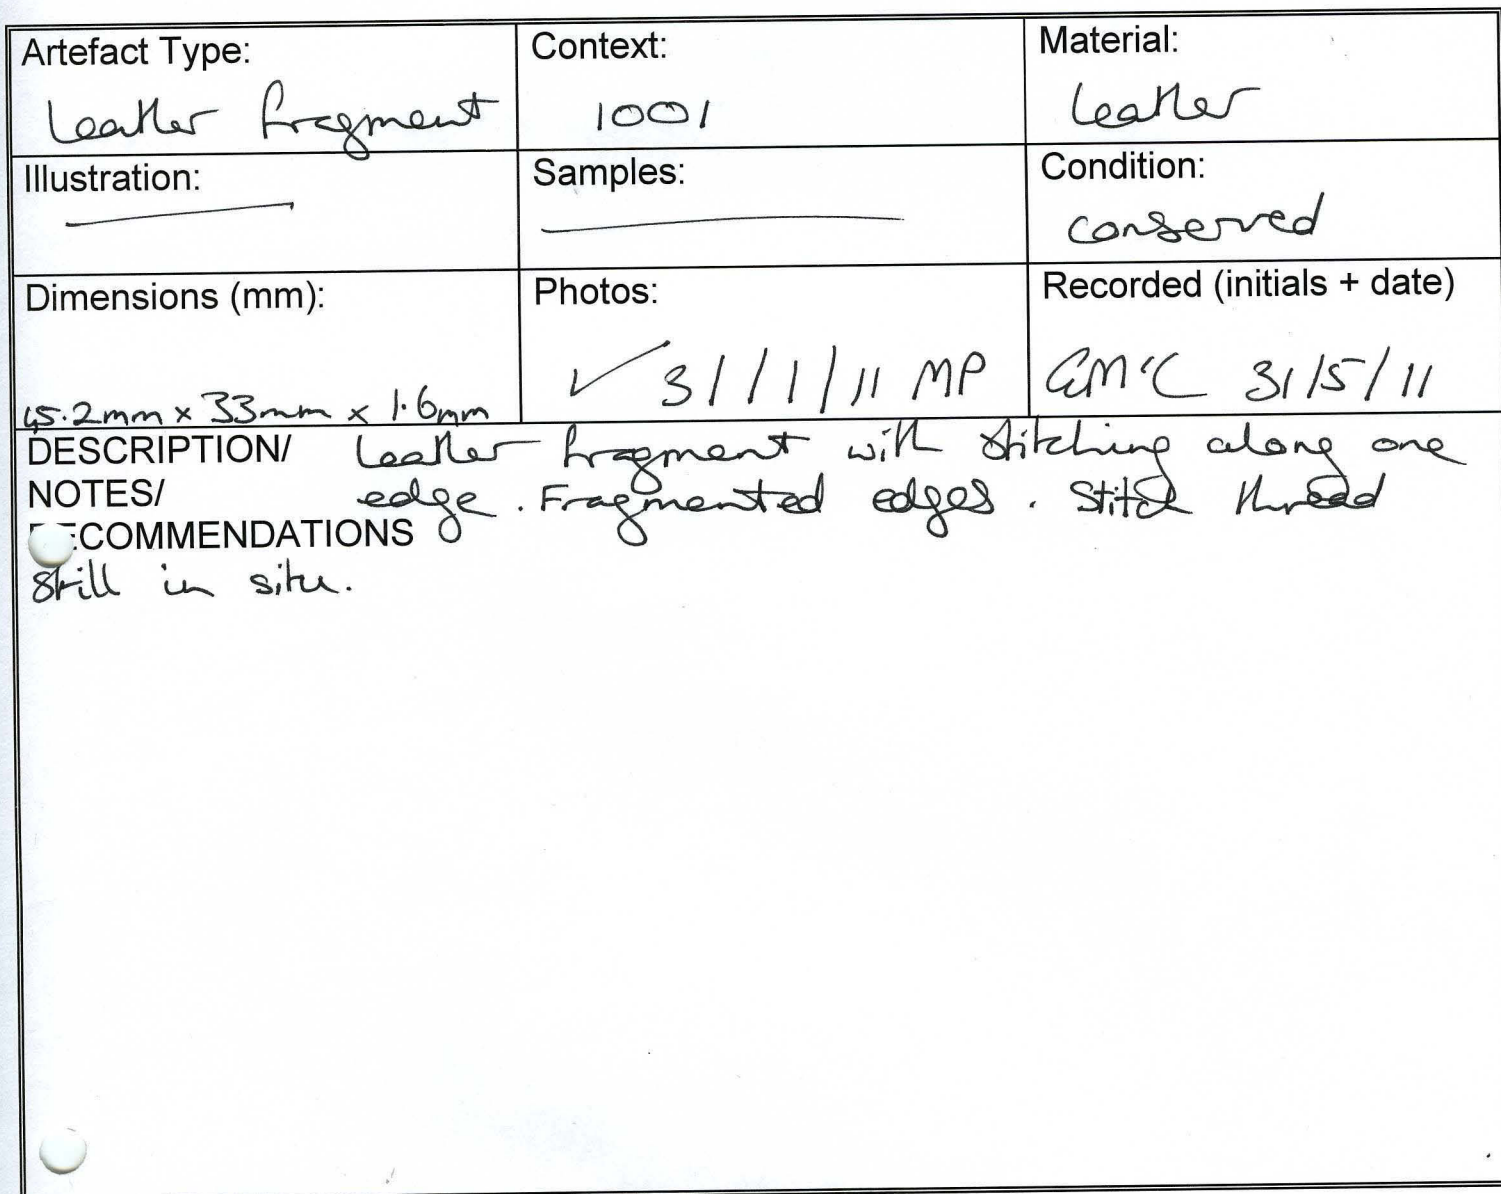 Artefact Type:
Leather fragment
Context:
1001
Material:
Leather
Illustration:
Samples:
Condition:
conserved
Dimensions (mm):
45.2mm x 33mm x 1.6mm
Photos:
✓ 31/1/11 MP
Recorded (initials + date)
31/5/11
DESCRIPTION/ Leather fragment with stitching along one
NOTES/ edge. Fragmented edges. Stitch thread
COMMENDATIONS
still in situ.